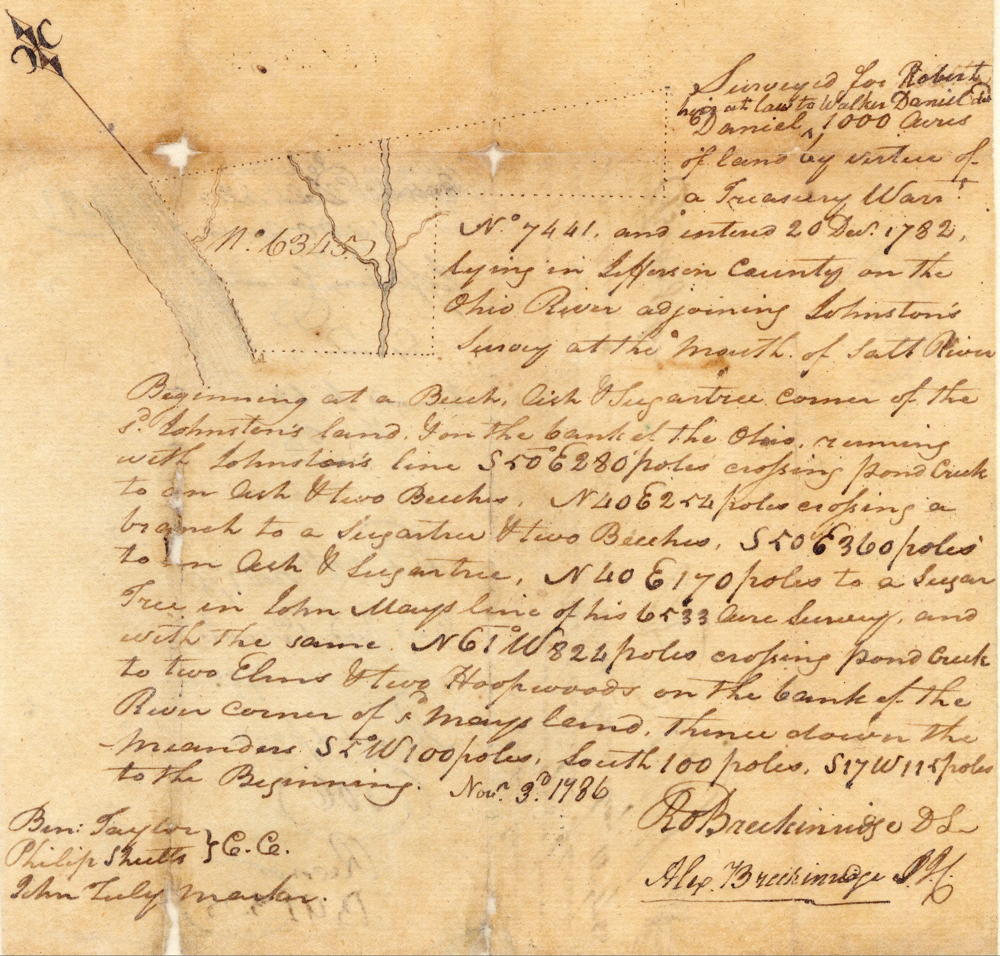 Surveyed for Robert
heir at law to Walker Daniel
Daniel, 1000 Acres
of land by virtue of
a Treasury Warr.t
N.o 7441, and entered 20 Dec.r 1782,
N.o 6345
lying in Jefferson County on the
Ohio River adjoining Johnston's
Survey at the mouth of Salt River
Beginning at a Beech, Ash & Sugartree corner of the
s.d Johnston's land, on the bank of the Ohio, running
with Johnston's line S50°E280 poles crossing pond Creek
to an Ash & two Beeches, N40E254 poles crossing a
branch to a Sugartree & two Beeches, S50°E360 poles
to an Ash & Sugartree, N40E170 poles to a Sugar
Tree in John Mays line of his 6533 Acre Survey, and
with the same N61°W822 poles crossing pond Creek
to two Elms & two Hoopwoods on the bank of the
River corner of s.d Mays land, thence down the
meanders S5°W100 poles, South 100 poles, S17W115 poles
to the Beginning. Nov.r 3.d 1786
Ro Breckinridge DS
Ben: Taylor
Philip Shutts } C.C.
Alex. Breckinridge
John Tuly marker.